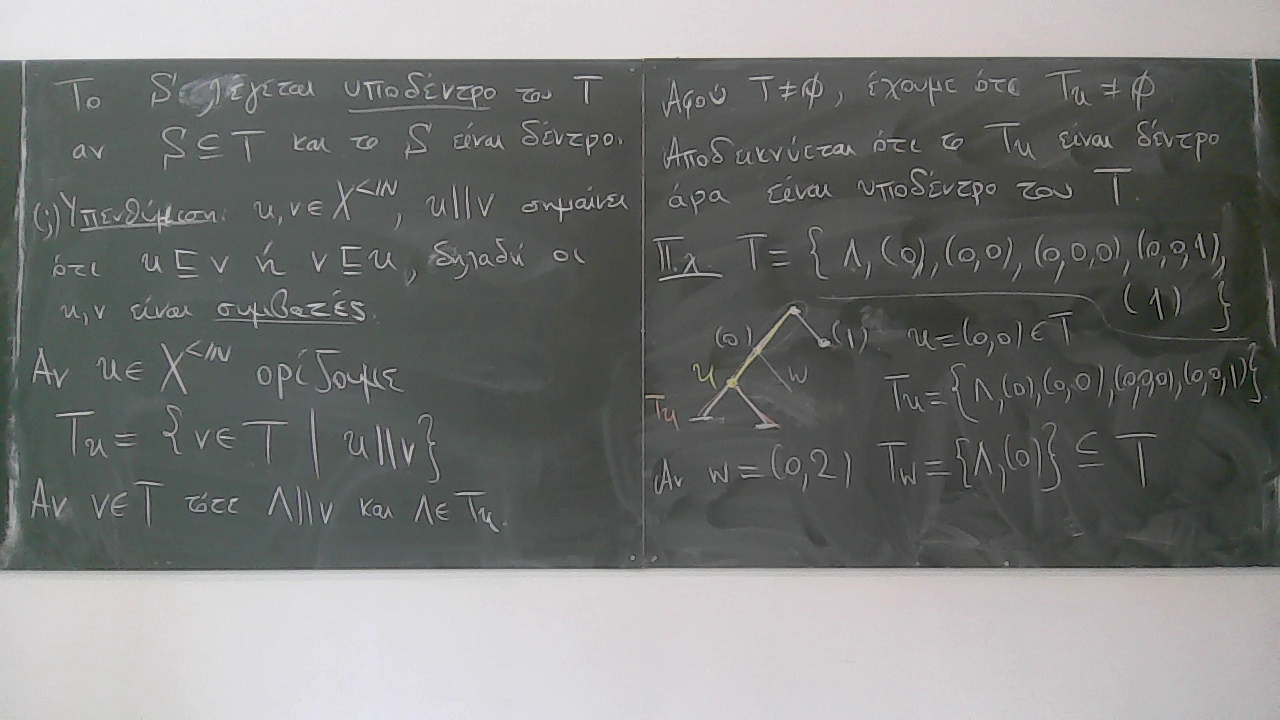 Το S λέγεται υποδέντρο του T
αν S ⊆ T και το S είναι δέντρο.
(ii) Υπενθύμιση: u,v ∈ X^{<ℕ}, u||v σημαίνει
ότι u ⊑ v ή v ⊑ u, δηλαδή οι
u,v είναι συμβατές.
Αν u ∈ X^{<ℕ} ορίζουμε
T_u = { v ∈ T | u||v }
Αν v ∈ T τότε Λ||v και Λ ∈ T_u.
Αφού T ≠ ∅, έχουμε ότι T_u ≠ ∅
Αποδεικνύεται ότι το T_u είναι δέντρο
άρα είναι υποδέντρο του T.
Π.χ. T = { Λ, (0), (0,0), (0,0,0), (0,0,1),
(1) }
(0) (1) u = (0,0) ∈ T
u w
T_u T_u = { Λ, (0), (0,0), (0,0,0), (0,0,1) }
Αν w = (0,2) T_w = { Λ, (0) } ⊆ T